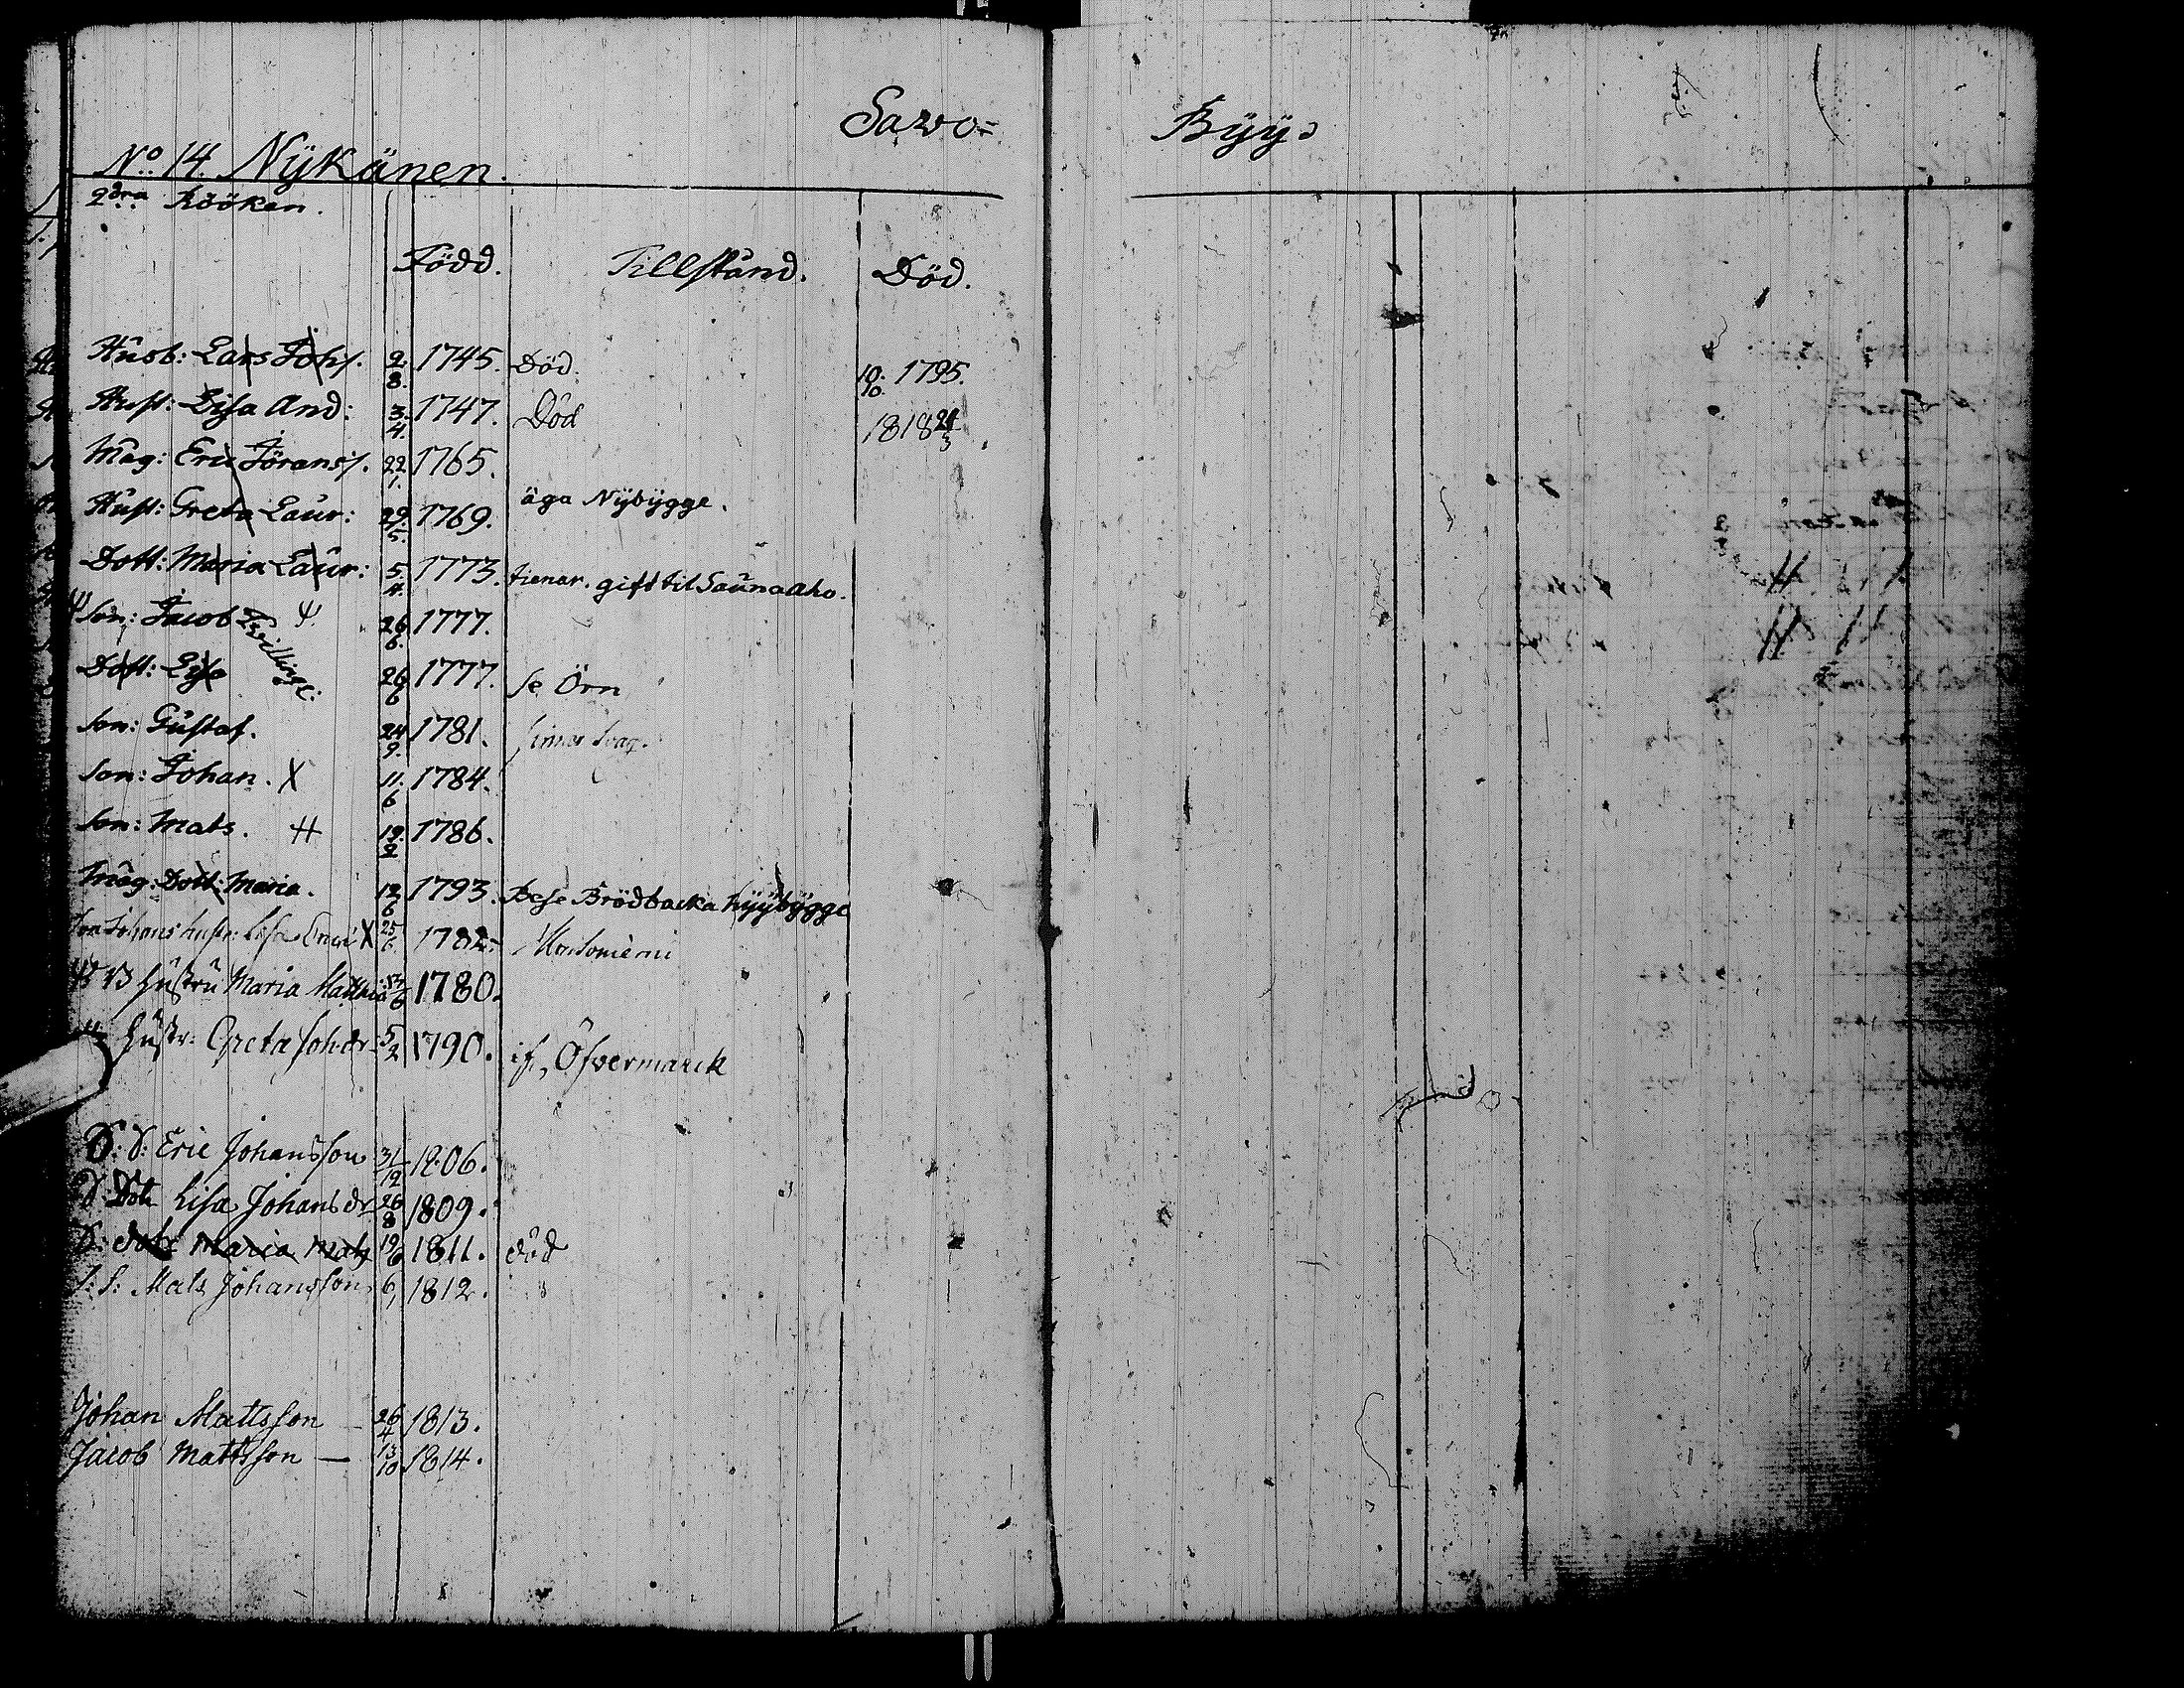 Sawo= Byÿs
No. 14. Nÿkänen.
2dra Rööken.
Född. Tillstånd. Död.
Husb: Lars Johs. 2/8. 1745. Död. 10./10. 1795.
Hust: Lisa And: 3./4. 1747. Död 1818 24/3
Måg: Eric Jörans s. 22/1. 1765.
äga Nÿbÿgge.
Hust: Greta Laur: 29./5. 1769.
Dott: Maria Laur: 5/4. 1773. tienar. gift til Saunaaho.
Ψ Son: Jacob Ψ 26/6. 1777.
Tvilling:
Dott: Lisa 26/6 1777. se Örn
Son: Gustaf. 24/9. 1781.
Son: Johan. X 11./6 1784.
Son: Mats. # 19./2 1786.
Måg: Dott: Maria. 12/6 1793. Bese Brödbacka Nÿÿbÿgge
Son Johans hustr: Lisa X 25/6. 1782.
Ψ hustru Maria Matths 1780.
# hustr: Greta Joh.dr 5/2 1790. Öfvermarck
S: S: Eric Johansson 31/12 1806.
S: Dotr Lisa Johansdr 26/8 1809.
S: dotr Maria Mats 19/6 1811. död
S: S: Mats Johansson 6/1 1812.
Johan Mattsson — 26/4 1813.
Jacob Mattsson — 13/10 1814.